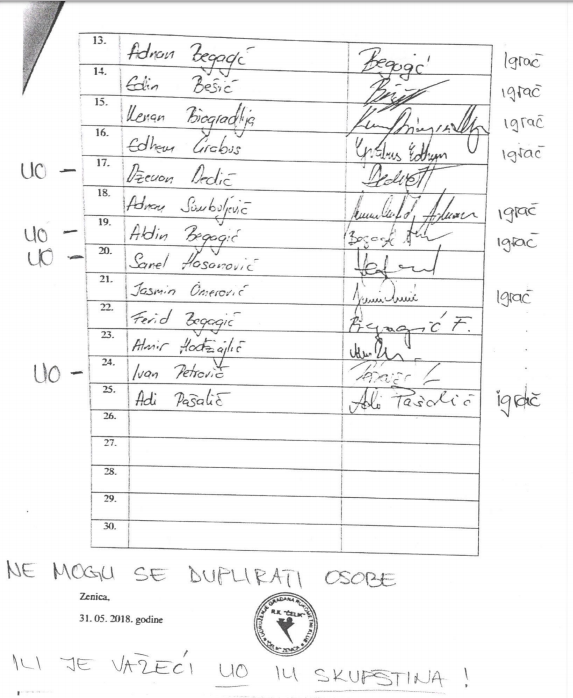 13. Adnan Begagić Begagić Igrač
14. Edin Bešić Igrač
15. Kenan Biogradlija Igrač
16. Edhem Grabus Edhem Igrač
UO - 17. Dževan Dedić
18. Adnan Igrač
UO - 19. Aldin Begagić Begagić Igrač
UO - 20. Sanel Hasanović
21. Jasmin Omerović Igrač
22. Ferid Begagić Begagić F.
23. Almir Hodžajlić
UO - 24. Ivan Petrović
25. Adi Pašalić Adi Pašalić igrač
26.
27.
28.
29.
30.
NE MOGU SE DUPLIRATI OSOBE
Zenica,
31. 05. 2018. godine
UDRUŽENJE GRAĐANA RUKOMETNI KLUB
R.K. "ČELIK"
"ČELIK" ZENICA
ILI JE VAŽEĆI UO ILI SKUPŠTINA !